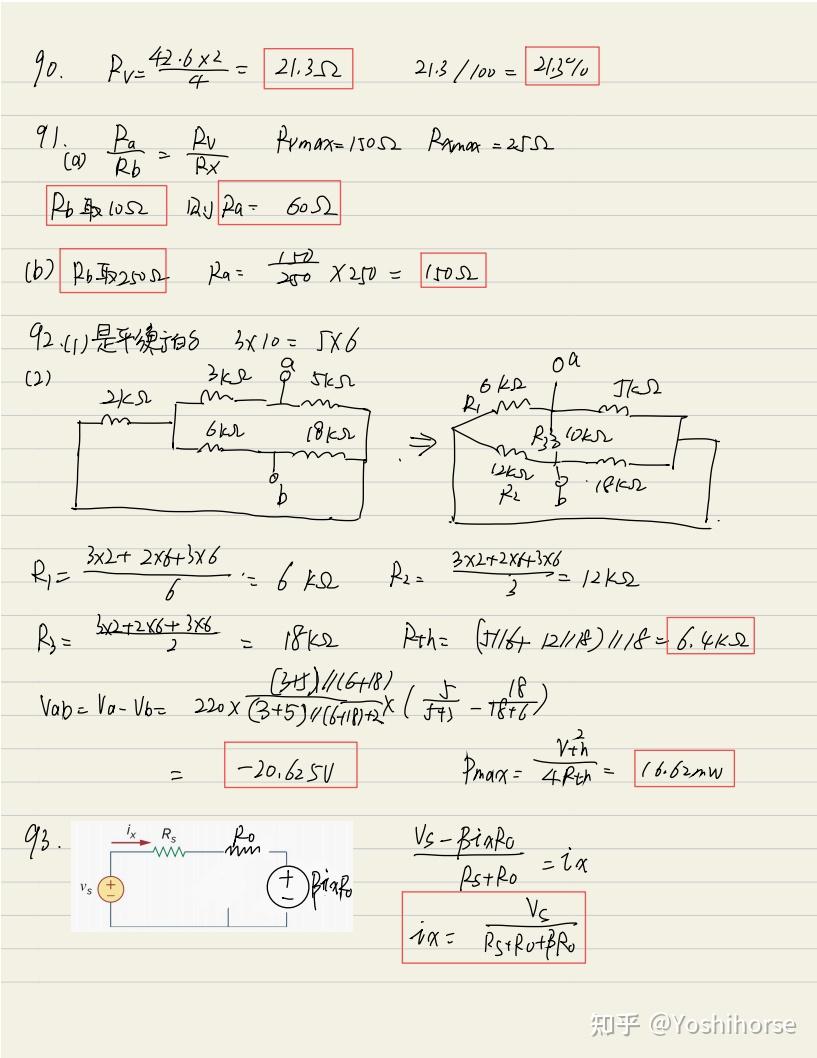 90. Rv= 42.6×2/4 = 21.3Ω 21.3/100 = 21.3%
91. (a) Ra/Rb = Rv/Rx Rvmax=150Ω Rxmax=25Ω
Rb取10Ω 则 Ra= 60Ω
(b) Rb取250Ω Ra= 150/250 ×250 = 150Ω
92. (1) 是平衡的 3×10= 5×6
(2)
2kΩ 3kΩ a 5kΩ 6kΩ 18kΩ b
⇒
6kΩ R1 a 5kΩ R3 10kΩ 12kΩ R2 b 18kΩ
R1= 3×2+2×6+3×6/6 = 6kΩ R2= 3×2+2×6+3×6/3 = 12kΩ
R3= 3×2+2×6+3×6/2 = 18kΩ Rth= (5//6+12//18)//18= 6.4kΩ
Vab= Va-Vb= 220× (3+5)//(6+18)/(3+5)//(6+18)+2 × (5/5+3 - 18/18+6)
= -20.625V Pmax= V²th/4Rth = 16.62mW
93. ix Rs Ro vs + - + - βixRo
Vs-βixRo/Rs+Ro = ix
ix= Vs/Rs+Ro+βRo
知乎 @Yoshihorse